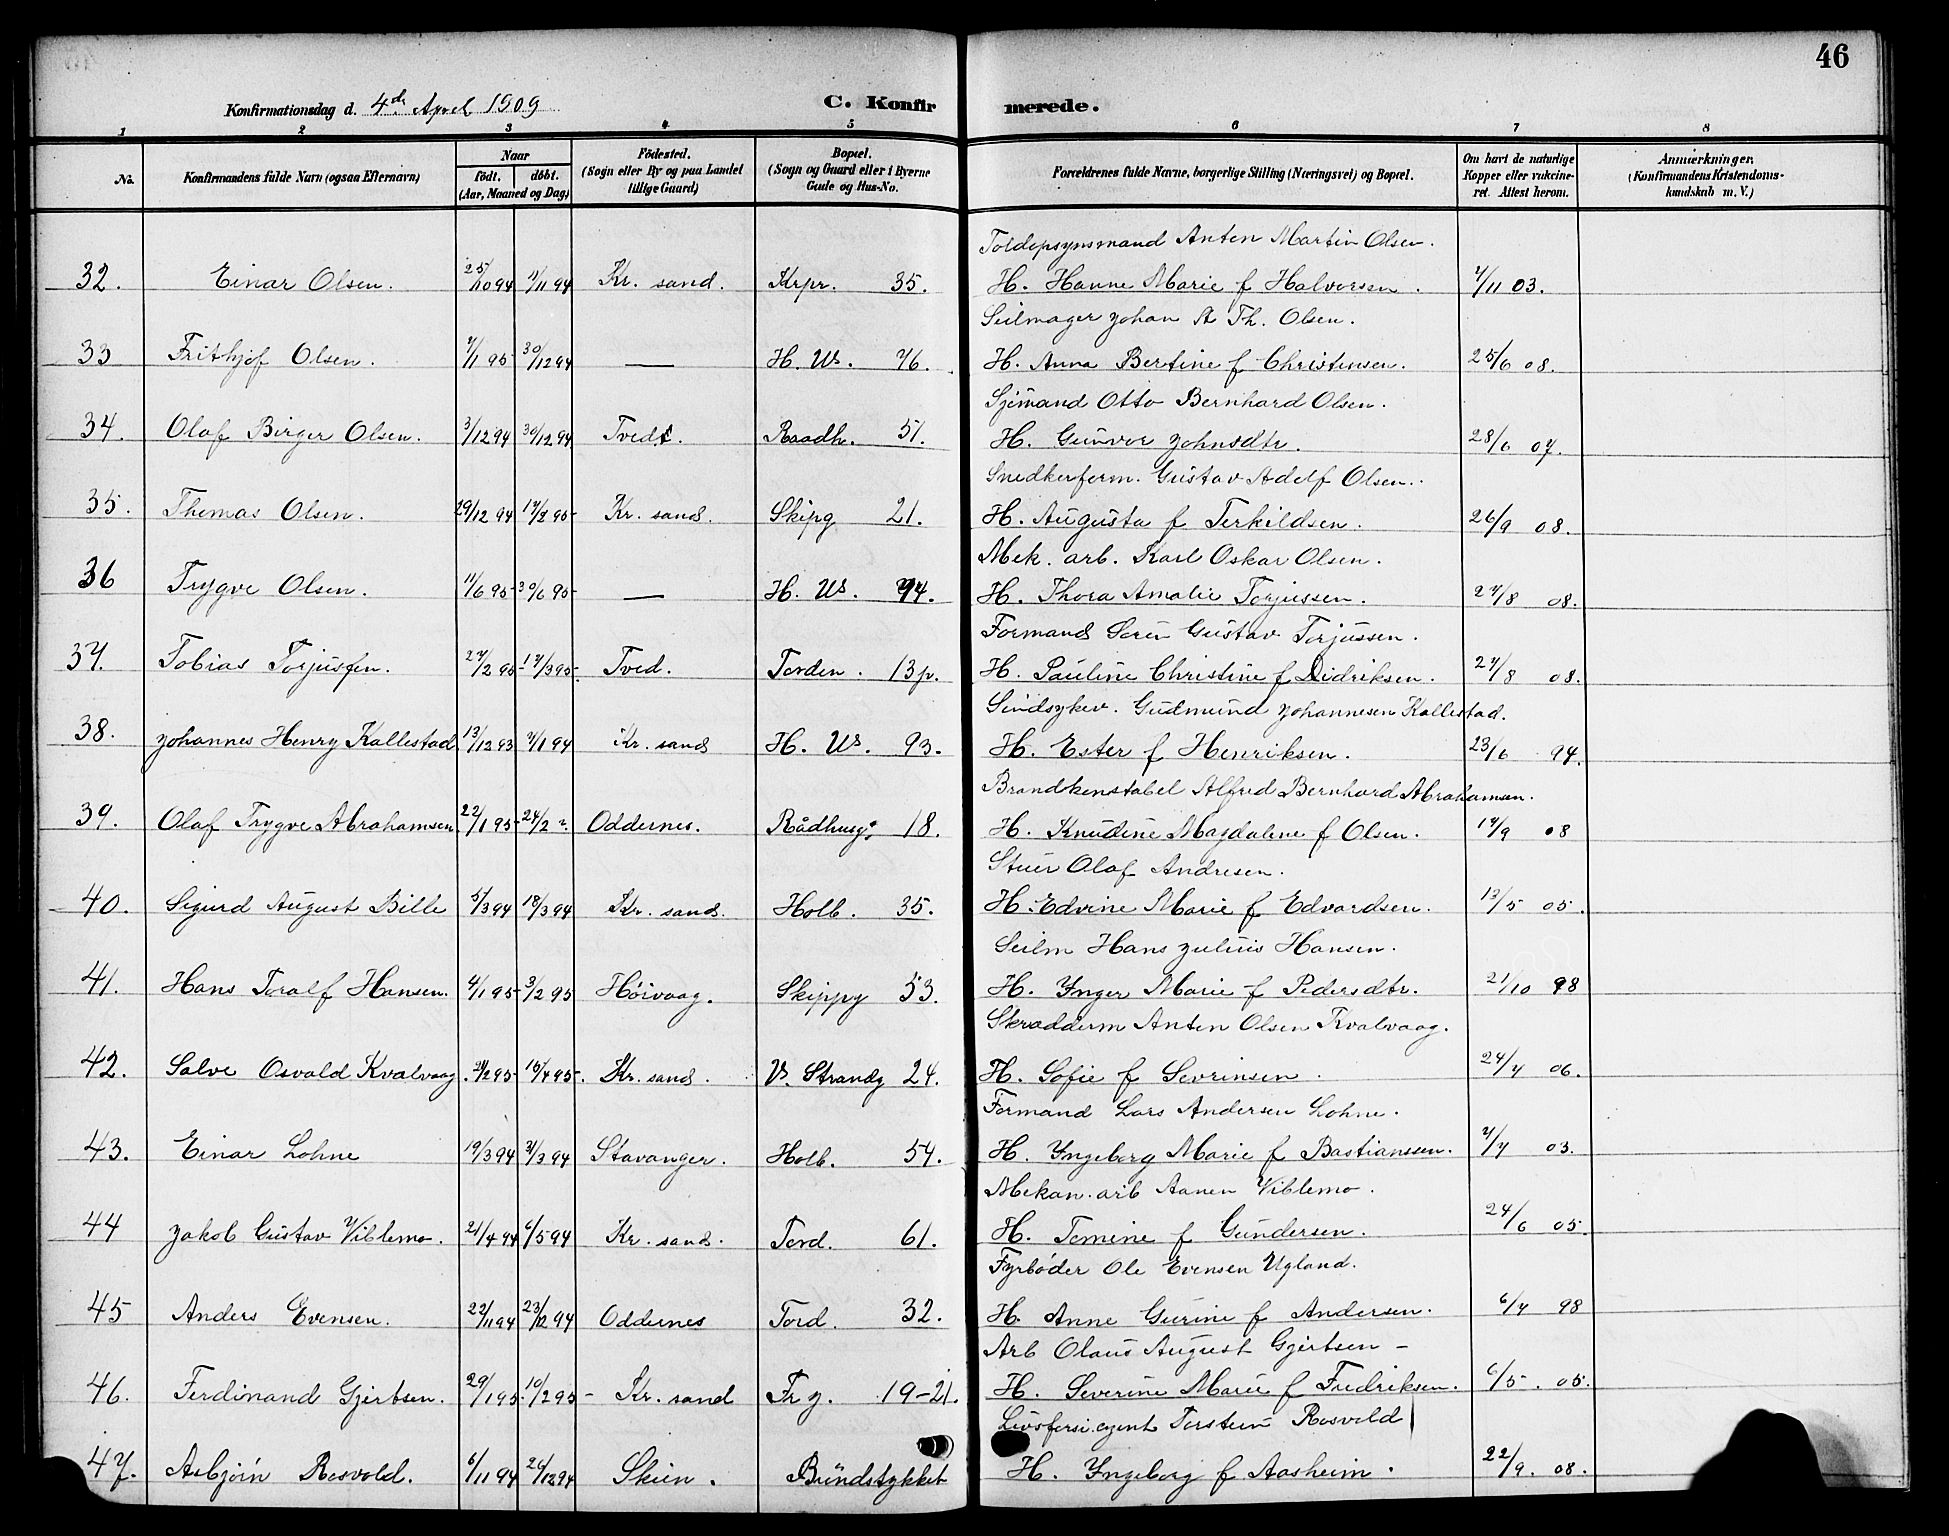 46
Konfirmationsdag d. 4de April 1909
C. Konfirmerede.
1 2 3 4 5 6 7 8
No. | Konfirmandens fulde Navn (ogsaa Efternavn) | Naar født. døbt. (Aar, Maaned og Dag) | Fødested. (Sogn eller By og paa Landet tillige Gaard) | Bopæl. (Sogn og Gaard eller i Byerne Gade og Hus-No. | Forældrenes fulde Navne, borgerlige Stilling (Næringsvei) og Bopæl. | Om havt de naturlige Kopper eller vakcineret. Attest herom. | Anmærkninger. (Konfirmandens Kristendomskundskab m. V.)
Toldopsynsmand Anton Martin Olsen.
32. Einar Olsen. 25/10 94 Kr. sand. Krpr. 35. H. Hanne Marie f Halvorsen. 7/11 03.
Seilmager Johan A Th. Olsen.
33 Frithjof Olsen. 30/12 94 — H. Us. 76. H. Anna Bertine f Christensen. 25/6 08.
Sjømand Otto Bernhard Olsen.
34. Olaf Birger Olsen. 3/12 94 30/12 94 Tvedt. Raadh. 51. H. Gunvor Johnsdtr. 28/6 07.
Snedkerform. Gustav Adolf Olsen.
35. Thomas Olsen. 29/12 94 17/2 95 Kr. sand. Skipg. 21. H. Augusta f Terkildsen. 26/9 08.
Mek. arb. Karl Oskar Olsen.
36 Trygve Olsen. 11/6 95 30/6 95 — H. Us. 94. H. Thora Amalie Torjussen. 27/8 08.
Formand Søren Gustav Torjussen.
37. Tobias Torjussen. 27/2 95 17/3 95 Tved. Torden. 13p. H. Pauline Christine f Didriksen. 27/8 08.
Sindsykev. Gudmund Johannesen Kallestad.
38. Johannes Henry Kallestad 13/12 93 7/1 94 Kr. sand H. Us. 93. H. Ester f Henriksen. 23/6 94.
Brandkonstabel Alfred Bernhard Abrahamsen.
39. Olaf Trygve Abrahamsen 22/1 95 24/2 ". Oddernes. Rådhusg. 18. H. Knudine Magdalene f Olsen. 17/9 08
Stuer Olaf Andresen.
40. Sigurd August Bille 5/3 94 18/3 94 Kr. sand. Holb. 35. H. Edvine Marie f Edvardsen. 13/5 05.
Seilm Hans Julius Hansen.
41. Hans Toralf Hansen. 4/1 95 3/2 95 Höivaag. Skippg 53. H. Ynger Marie f Pedersdtr. 21/10 98
Skrædderm Anton Olsen Kvalvaag.
42. Salve Osvald Kvalvaag. 15/4 95. Kr. sand. V. Strandg 24. H. Sofie f Sevrinsen. 24/7 06.
Formand Lars Andersen Lohne.
43. Einar Lohne 19/3 94 31/3 94 Stavanger. Holb. 54. H. Yngeborg Marie f Bastianssen. 7/7 03.
Mekan. arb Aanen Viblemo.
44 Jakob Gustav Viblemo. 21/4 94 6/5 94 Kr. sand. Tord. 61. H. Tomine f Gundersen. 24/6 05.
Fyrbøder Ole Evensen Ugland.
45 Anders Evensen. 22/11 94 23/12 94 Oddernes Tord. 32. H. Anne Gurine f Andersen. 6/7 98
Arb Olaus August Gjertsen –
46. Ferdinand Gjertsen. 29/1 95. 10/2 95 Kr. sand Fr g. 19–21. H. Severine Marie f Fredriksen. 6/5. 05.
Livsforsi. agent Torstein Rosvold
47. Asbjörn Rosvold. 6/11 94 26/12 94 Skien. Bündstykket H. Yngeborg f Aasheim. 22/9. 08.